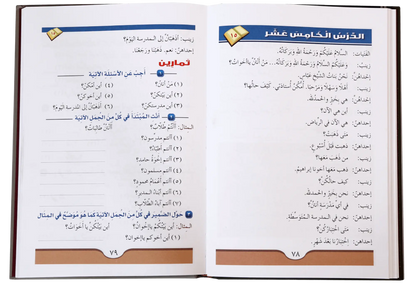 الدَّرْسُ الْخَامِسَ عَشَرَ
١٥
الفتيات: السلامُ عليكُم ورحمةُ الله وبركاتُهُ.
زينب: وعليكُم السلامُ ورحمةُ الله وبركاتُهُ. مَنْ أنتُنَّ يا أخواتُ؟
إحداهنّ: نحنُ بناتُ الشيخِ عباس.
زينب: أهلاً وسهلاً ومرحباً. أُمُّكُنَّ أُستاذتي. كيفَ حالُها؟
إحداهنّ: هي بخيرٍ والحمدُ لله.
زينب: أين هي الآن؟
إحداهنّ: هي الآن في الرياض.
زينب: متى ذهبتْ؟
إحداهنّ: ذهبت قبلَ أسبوع.
زينب: من ذهبَ معها؟
إحداهنّ: ذهبَ معها أخونا إبراهيم.
زينب: كيف حالُكُنَّ؟
إحداهنّ: نحنُ بخيرٍ والحمدُ لله.
زينب: في أيِّ مدرسةٍ أنتُنَّ؟
إحداهنّ: نحن في المدرسة المتوسّطة.
زينب: متى اختبارُكُنَّ؟
إحداهنّ: اختبارُنا بعدَ شهرٍ.
٧٨
زينب: أذهبتُنَّ إلى المدرسة اليوم؟
إحداهنّ: نعم، ذهبنا ورجعنا.
تمارين
١ أجبْ عن الأسئلة الآتية
(١) مَنْ أنتُنَّ؟ (٢) أين أُمُّكُنَّ؟
(٣) أين بيتُكُنَّ؟ (٤) أين أخوكُنَّ؟
(٥) أين مدرستُكُنَّ؟ (٦) أذهبتُنَّ إلى المدرسة اليوم؟
٢ أنّث المُبتدأ في كلٍّ من الجمل الآتية
المثال: أنتُم طُلّابٌ؟ أنتُنَّ طالباتٌ؟
(١) أأنتم مدرّسون؟
(٢) أأنتم أطباء؟
(٣) أأنتم إخوةُ حامدٍ؟
(٤) أأنتم أعمامُ محمودٍ؟
(٥) أأنتم أبناءُ المديرِ؟
(٦) أين أنتم يا أبناء؟
٣ حوّل الضمير في كلٍّ من الجمل الآتية كما هو مُوضّح في المثال
المثال: أين بيتُكُم يا إخوان؟ أين بيتُكُنَّ يا أخوات؟
(١) أين أخوكم يا إخوان؟
٧٩